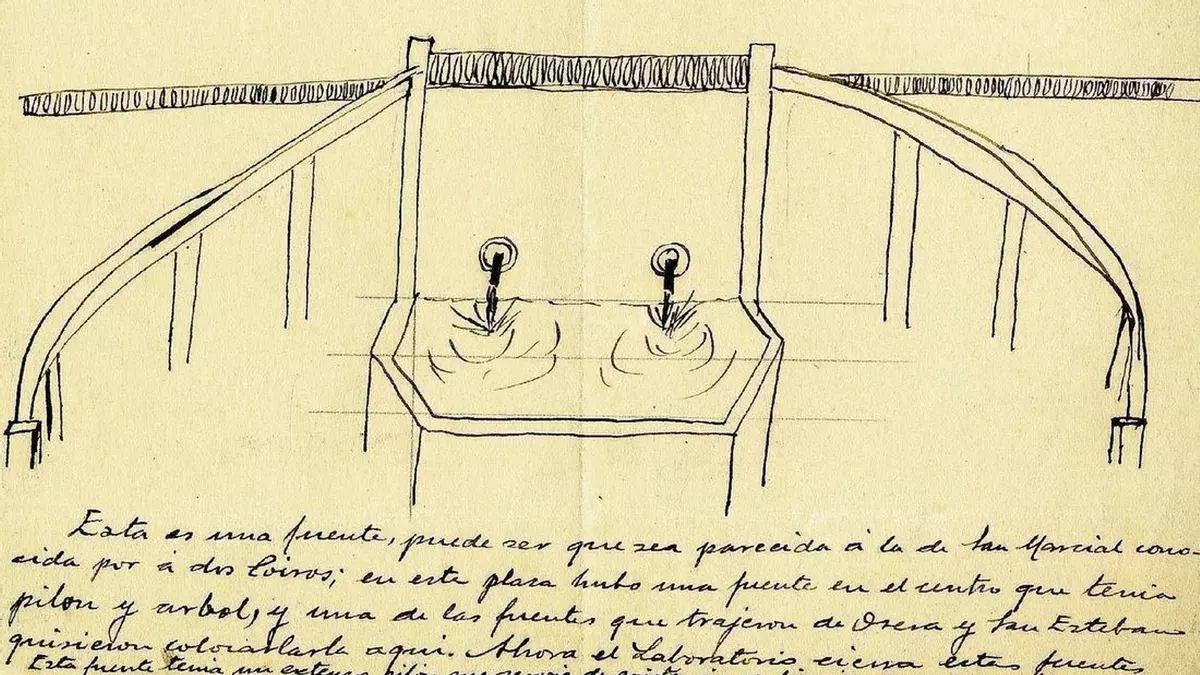 Esta es una fuente, puede ser que sea parecida á la de San Marcial cono-
cida por á dos Coiros; en esta plaza hubo una fuente en el centro que tenia
pilon y arbol, y una de las fuentes que trajeron de Osera y San Esteban
quisieron colocarla aqui. Ahora el Laboratorio cierra estas fuentes
Esta fuente tenia un extenso pilon que servia de